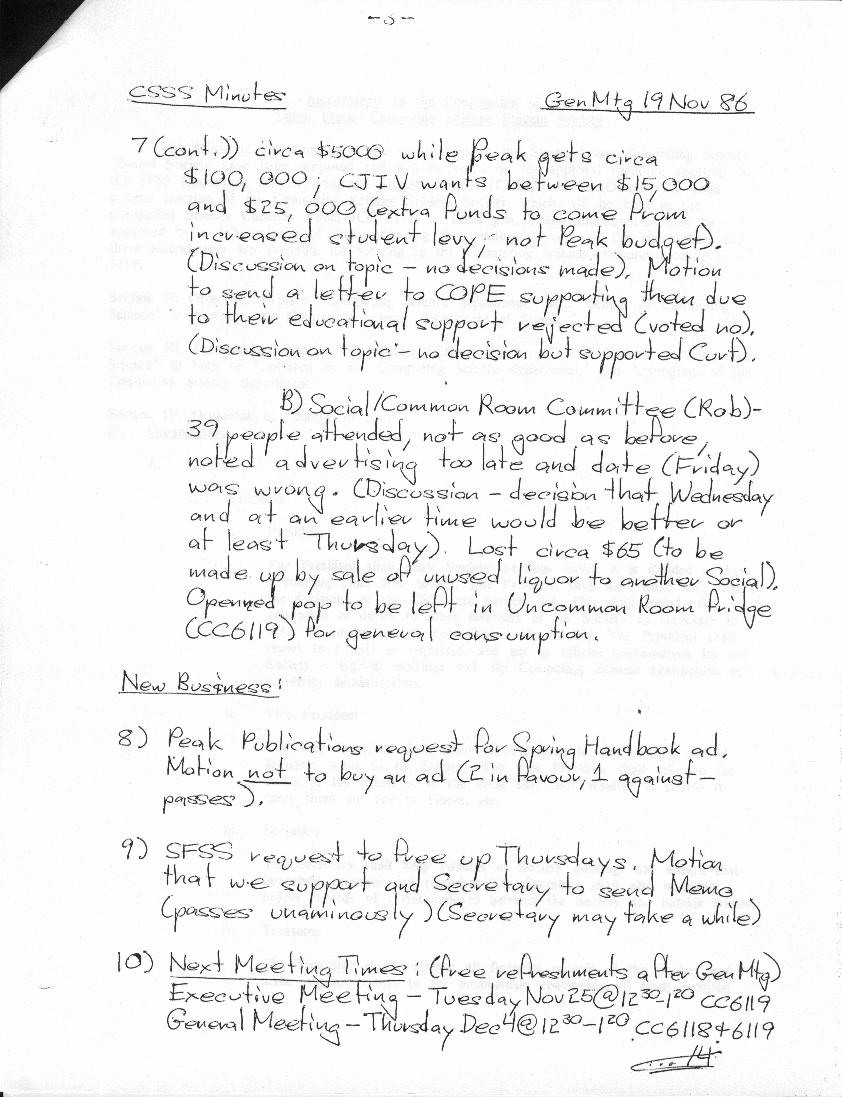 CSSS Minutes Gen Mtg 19 Nov 86
7 (cont.)) circa $5000 while Peak gets circa
$100,000; CJIV wants between $15,000
and $25,000 (extra funds to come from
increased student levy, not Peak budget).
(Discussion on topic - no decisions made). Motion
to send a letter to COPE supporting them due
to their educational support rejected (voted no).
(Discussion on topic - no decision but supported Curt).
B) Social/Common Room Committee (Rob)-
39 people attended, not as good as before,
noted advertising too late and date (Friday)
was wrong. (Discussion - decision that Wednesday
and at an earlier time would be better or
at least Thursday). Lost circa $65 (to be
made up by sale of unused liquor to another Social).
Openned pop to be left in Uncommon Room fridge
(CC6119) for general consumption.
New Business:
8) Peak Publications request for Spring Handbook ad.
Motion not to buy an ad (2 in favour, 1 against -
passes).
9) SFSS request to free up Thursdays. Motion
that we support and Secretary to send Memo
(passes unaminously) (Secretary may take a while)
10) Next Meeting Times: (free refreshments after Gen Mtg)
Executive Meeting - Tuesday Nov 25 @ 12 30-1 20 CC6119
General Meeting - Thursday Dec 4 @ 12 30-1 20 CC6118+6119